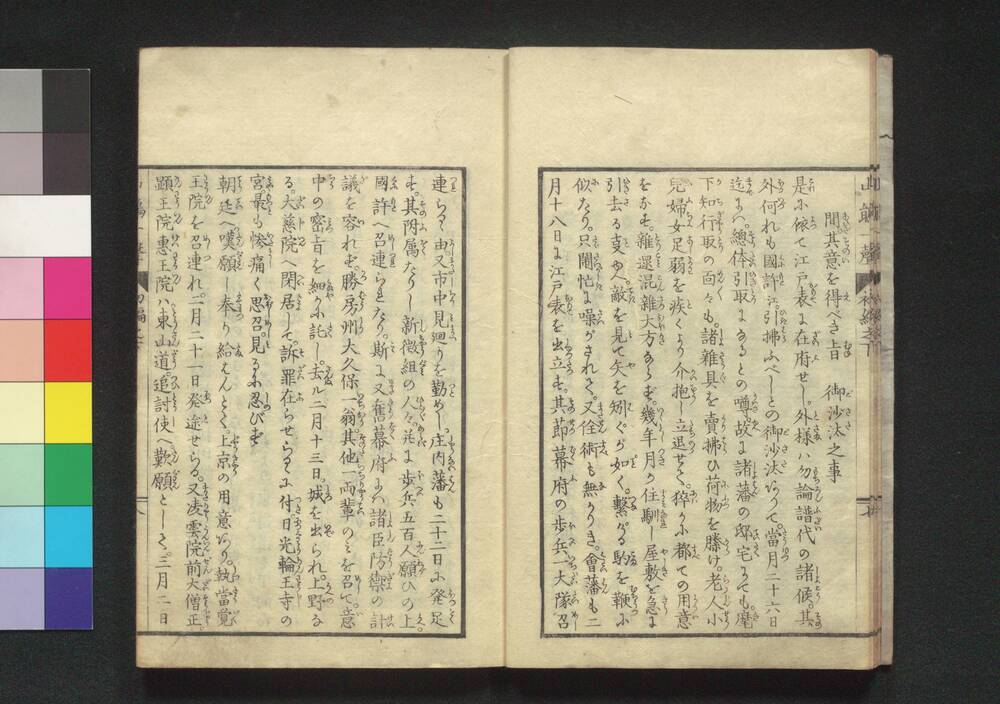 聞其意を得べき旨　御沙汰之事
是に依て江戸表に在府せし。外様ハ勿論譜代の諸侯。其
外何れも國許江引拂ふべしとの御沙汰らくて。當月二十六日
迄にハ。總体引取にあるとの噂故に諸藩の邸宅にても麾
下知行取の面々も。諸雜具を賣拂ひ荷物を勝げ。老人小
兒婦女足弱を疾くより介抱し立退せて。猝かに都ての用意
をなせ。雜遝混雜大方ならず。幾年月か住馴し屋敷を急に
引去る事や人敵を見て矢を矧ぐが如く。繋がる駒を鞭に
似たり。只鬧忙に噪がされて。又佺術も無かりき。會藩も二
月十八日に江戸表を出立す。其節幕府の歩兵一大隊召
連らるゝ由又市中見廻りを勤めし。庄内藩も二十二日に発足
す。其附属たりし新徴組の人々。并に歩兵五百人願ひの上
國許へ召連られたり。斯に又舊幕府にハ諸臣防禦の計
議を容れず。勝房州大久保一翁其他一両輩のミを召て。意
中の密旨を細かに託し。去ル二月十三日。城を出られ。上野な
る。大慈院へ閑居して。訴罪在らせらるゝに付日光輪王寺の
宮。最も惨痛く思召。見るに忍びず
朝廷へ嘆願し奉り給はんとて。上京の用意あり。執當覚
王院を召連れ。二月二十一日発途せらる。又凌雲院前大僧正。
顕王院惠王院ハ東山道追討使へ歎願として。三月二日